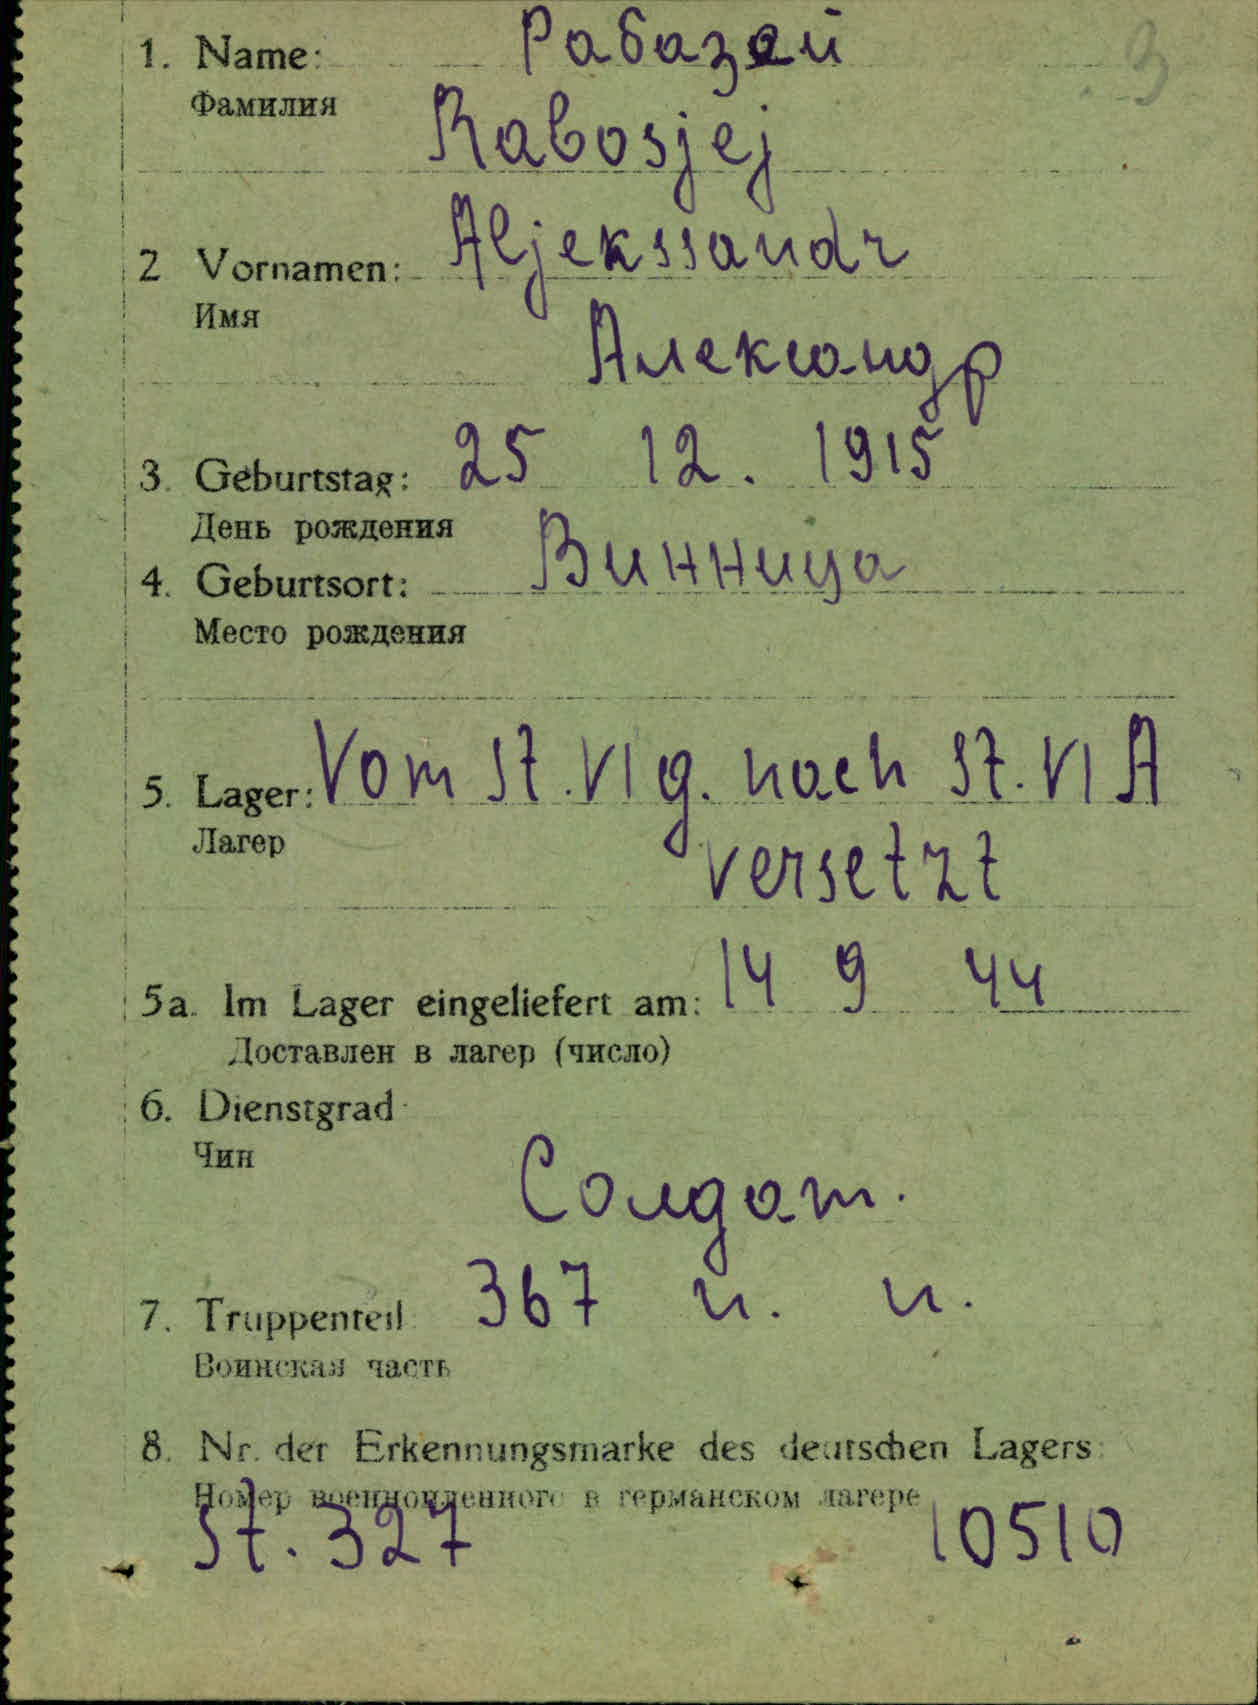 1. Name: Рабазей
3
Фамилия
Rabosjej
2 Vornamen: Aljekssandr
Имя
Александр
3. Geburtstag: 25 12. 1915
День рождения
4. Geburtsort: Винница
Место рождения
5. Lager: Vom St. VI g. nach St. VI A
Лагер
versetzt
5a. Im Lager eingeliefert am: 14 9 44
Доставлен в лагер (число)
6. Dienstgrad
Чин
Солдат.
7. Truppenteil 367 п. п.
Воинская часть
8. Nr. der Erkennungsmarke des deutschen Lagers:
Номер военнопленного в германском лагере
St. 327 10510